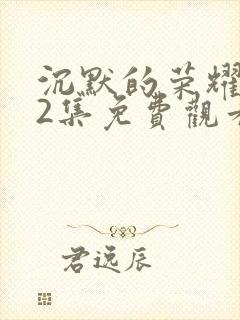 沉默的荣耀
2集免費觀看
君远辰